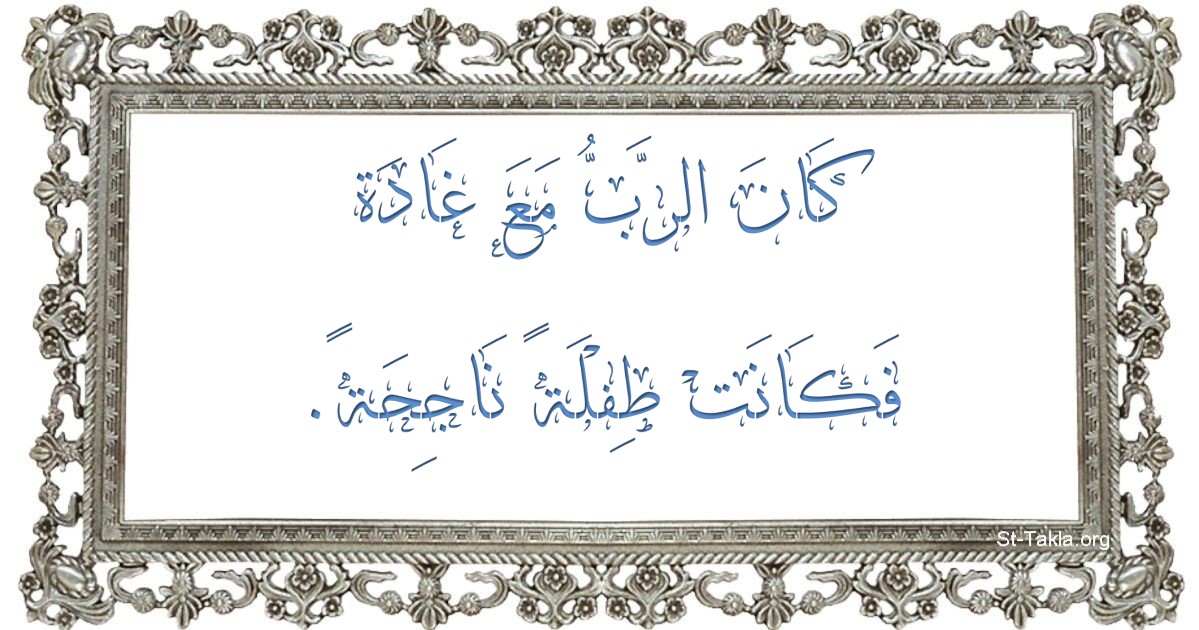 كَانَ الرَّبُّ مَعَ غَادَة
فَكَانَت طِفْلَةً نَاجِحَةً.
St-Takla.org